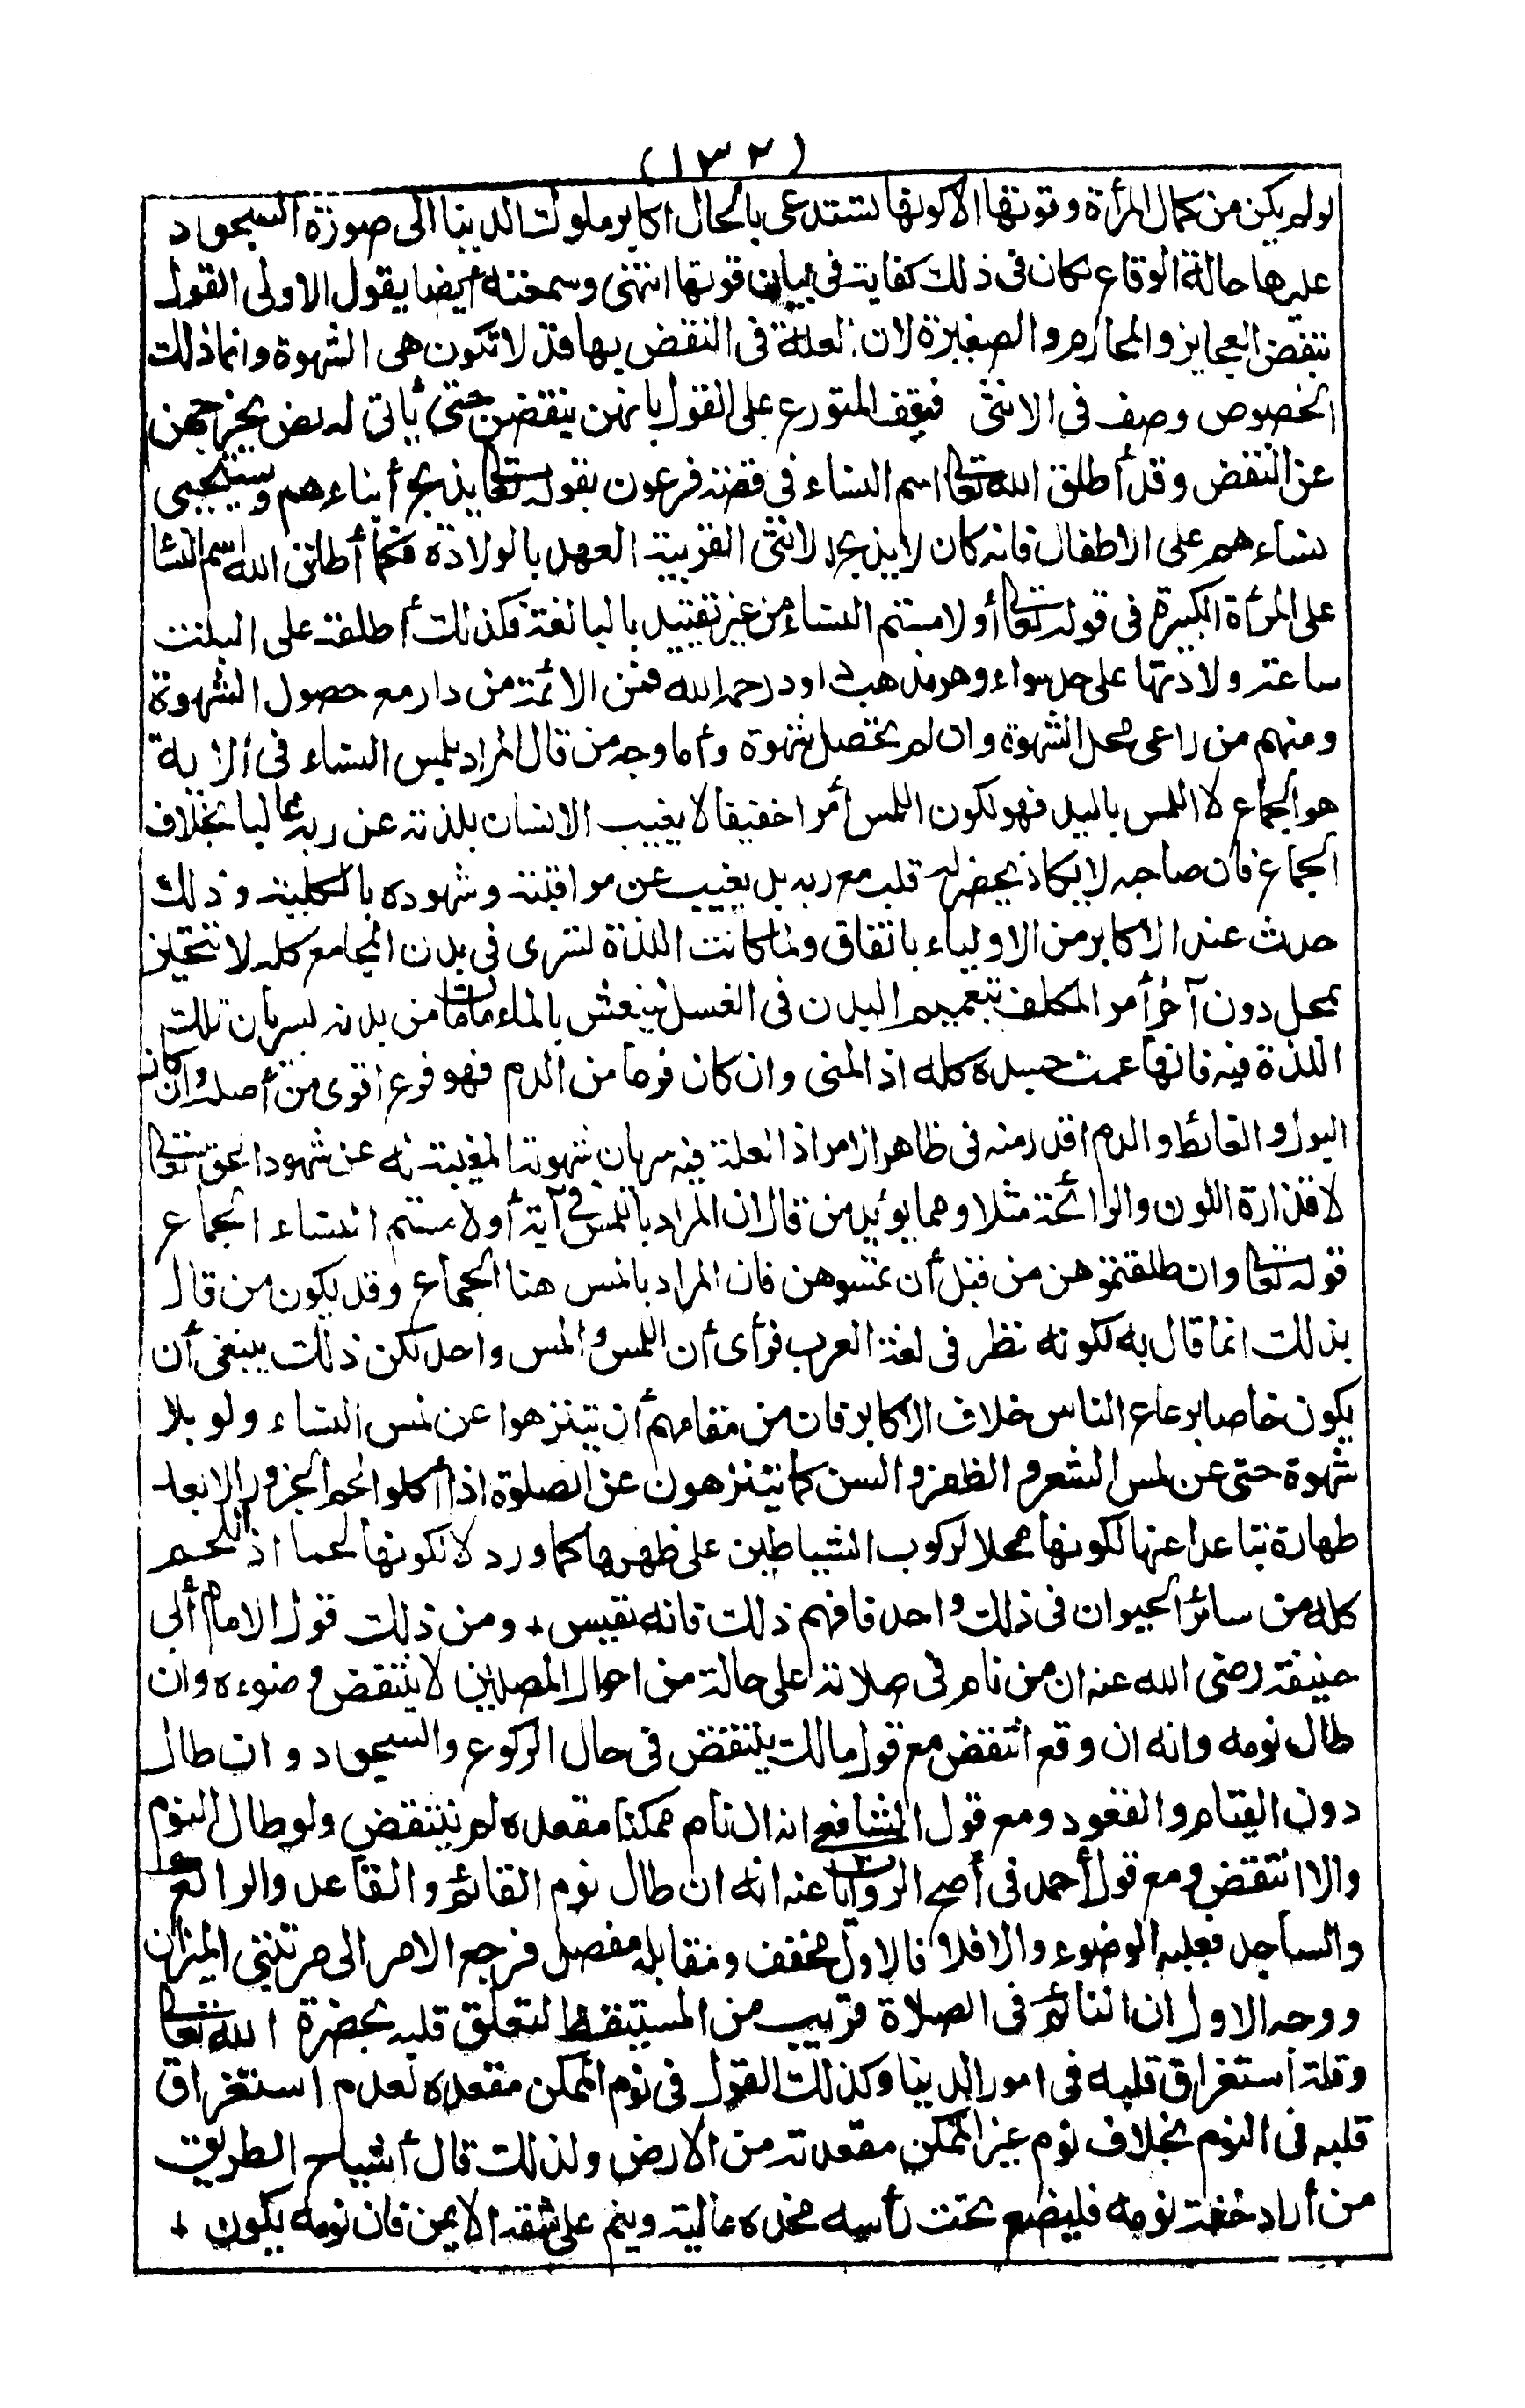 (١٣٢)
لو لم يكن من كمال المرأة وقوتها الا كونها تستدعى بالحال اكابر ملوك الدنيا الى صورة السجود
عليها حالة الوقاع لكان فى ذلك كفاية فى بيان قوتها انتهى وسمعته أيضا يقول الاولى القول
بنقض العجايز والمحارم والصغيرة لان العلة فى النقض بها قد لا تكون هى الشهوة وانما ذلك
لخصوص وصف فى الانثى فيقف المتورع على القول بانهن ينقضن حتى يأتى له نص يخرجهن
عن النقض وقد أطلق الله تعالى اسم النساء فى قصة فرعون بقوله تعالى يذبح أبناءهم ويستحيى
نساءهم على الاطفال فانه كان لا يذبح الانثى القريبة العهد بالولادة فكما أطلق الله اسم النسا
على المرأة الكبيرة فى قوله تعالى أو لامستم النساء من غير تقييد بالبالغة فكذلك أطلقه على البنت
ساعة ولادتها على حد سواء وهو مذهب داود رحمه الله فمن الائمة من دار مع حصول الشهوة
ومنهم من راعى محل الشهوة وان لم تحصل شهوة وأما وجه من قال المراد بلمس النساء فى الاية
هو الجماع لا اللمس باليد فهو لكون اللمس أمرا خفيفا لا يغيب الانسان بلذته عن ربه غالبا بخلاف
الجماع فان صاحبه لا يكاد يحضر له قلب مع ربه بل يغيب عن مراقبته وشهوده بالكلية وذلك
حدث عند الاكابر من الاولياء باتفاق ولما كانت اللذة تسرى فى بدن المجامع كله لا تتحيز
بمحل دون آخر أمر المكلف بتعميم البدن فى الغسل لينعش بالماء ما مات من بدنه بسريان تلك
اللذة فيه فانها عمت جسده كله اذ المنى وان كان فرعا من الدم فهو فرع اقوى من أصله وان كان
البول والغائط والدم اقذر منه فى ظاهر الامر اذ العلة فيه سريان شهوته المغيبة له عن شهود الحق تعالى
لا قذارة اللون والرائحة مثلا ومما يؤيد من قال ان المراد باللمس فى آية أو لامستم النساء الجماع
قوله تعالى وان طلقتموهن من قبل أن تمسوهن فان المراد بالمس هنا الجماع وقد يكون من قال
بذلك انما قال به لكونه نظر فى لغة العرب فرأى أن اللمس والمس واحد لكن ذلك ينبغى أن
يكون خاصا برعاع الناس خلاف الاكابر فان من مقامهم أن يتنزهوا عن لمس النساء ولو بلا
شهوة حتى عن لمس الشعر والظفر والسن كما يتنزهون عن الصلوة اذا أكلوا لحم الجزور الا بعد
طهارة تباعدا عنها لكونها محلا لركوب الشياطين على ظهرها كما ورد لا لكونها لحما اذ اللحم
كله من سائر الحيوان فى ذلك واحد فافهم ذلك فانه نفيس + ومن ذلك قول الامام أبى
حنيفة رضى الله عنه ان من نام فى صلاته على حالة من احوال المصلين لا ينتقض وضوءه وان
طال نومه وانه ان وقع انتقض مع قول مالك ينتقض فى حال الركوع والسجود وان طال
دون القيام والقعود ومع قول الشافعى انه ان نام ممكنا مقعده لم ينتقض ولو طال النوم
والا انتقض ومع قول أحمد فى أصح الروايات عنه انه ان طال نوم القائم والقاعد والراكع
والساجد فعليه الوضوء والا فلا فالاول مخفف ومقابله مفصل فرجع الامر الى مرتبتى الميزان
ووجه الاول ان النائم فى الصلاة قريب من المستيقظ لتعلق قلبه بحضرة الله تعالى
وقلة استغراق قلبه فى امور الدنيا وكذلك القول فى نوم الممكن مقعده لعدم استغراق
قلبه فى النوم بخلاف نوم غير الممكن مقعدته من الارض ولذلك قال أشياخ الطريق
من أراد خفة نومه فليضع تحت رأسه مخدة عالية وينم على شقه الايمن فان نومه يكون +